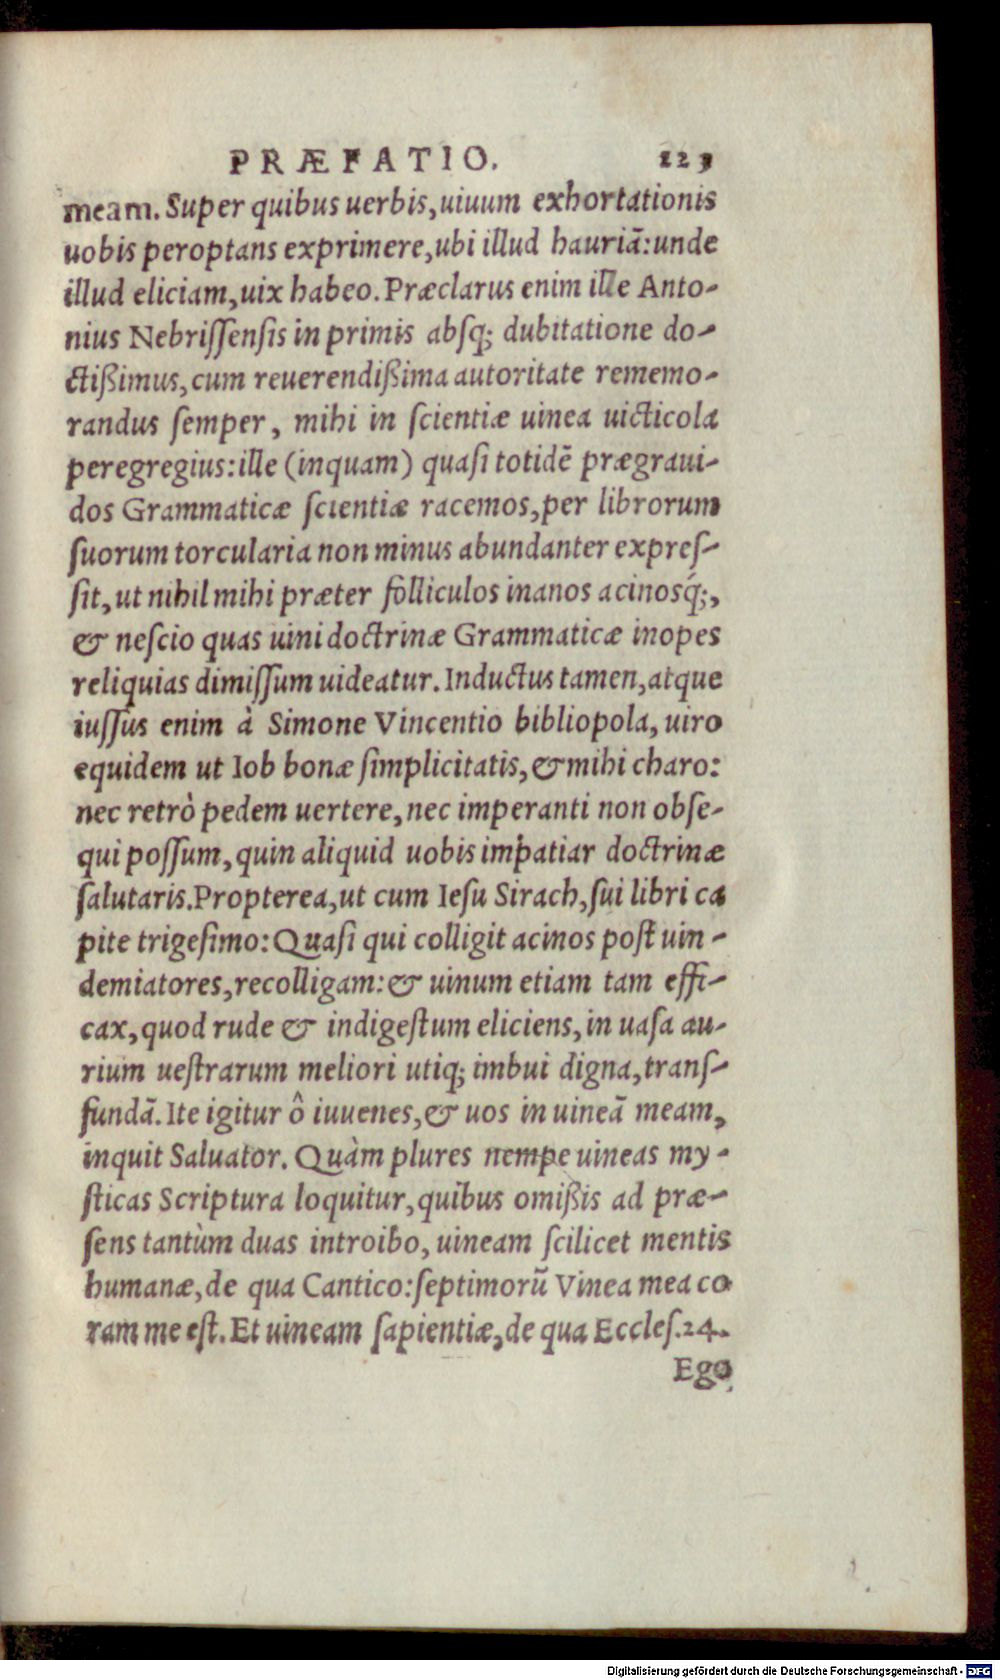 PRÆFATIO. 123
meam. Super quibus uerbis, uiuum exhortationis
uobis peroptans exprimere, ubi illud hauriā: unde
illud eliciam, uix habeo. Præclarus enim ille Anto-
nius Nebriſſenſis in primis abſq; dubitatione do-
ctißimus, cum reuerendißima autoritate rememo-
randus ſemper, mihi in ſcientiæ uinea uicticola
peregregius: ille (inquam) quaſi totidē prægraui-
dos Grammaticæ ſcientiæ racemos, per librorum
ſuorum torcularia non minus abundanter expreſ-
ſit, ut nihil mihi præter folliculos inanos acinosq́;,
& neſcio quas uini doctrinæ Grammaticæ inopes
reliquias dimiſſum uideatur. Inductus tamen, atque
iuſſus enim à Simone Vincentio bibliopola, uiro
equidem ut Iob bonæ ſimplicitatis, & mihi charo:
nec retrò pedem uertere, nec imperanti non obſe-
qui poſſum, quin aliquid uobis impatiar doctrinæ
ſalutaris. Propterea, ut cum Ieſu Sirach, ſui libri ca
pite trigeſimo: Quaſi qui colligit acinos poſt uin-
demiatores, recolligam: & uinum etiam tam effi-
cax, quod rude & indigeſtum eliciens, in uaſa au-
rium ueſtrarum meliori utiq; imbui digna, tranſ-
fundā. Ite igitur ô iuuenes, & uos in uineā meam,
inquit Saluator. Quàm plures nempe uineas my-
ſticas Scriptura loquitur, quibus omißis ad præ-
ſens tantùm duas introibo, uineam ſcilicet mentis
humanæ, de qua Cantico: ſeptimorū Vinea mea co
ram me eſt. Et uineam ſapientiæ, de qua Eccleſ. 24.
Ego
Digitalisierung gefördert durch die Deutsche Forschungsgemeinschaft - DFG